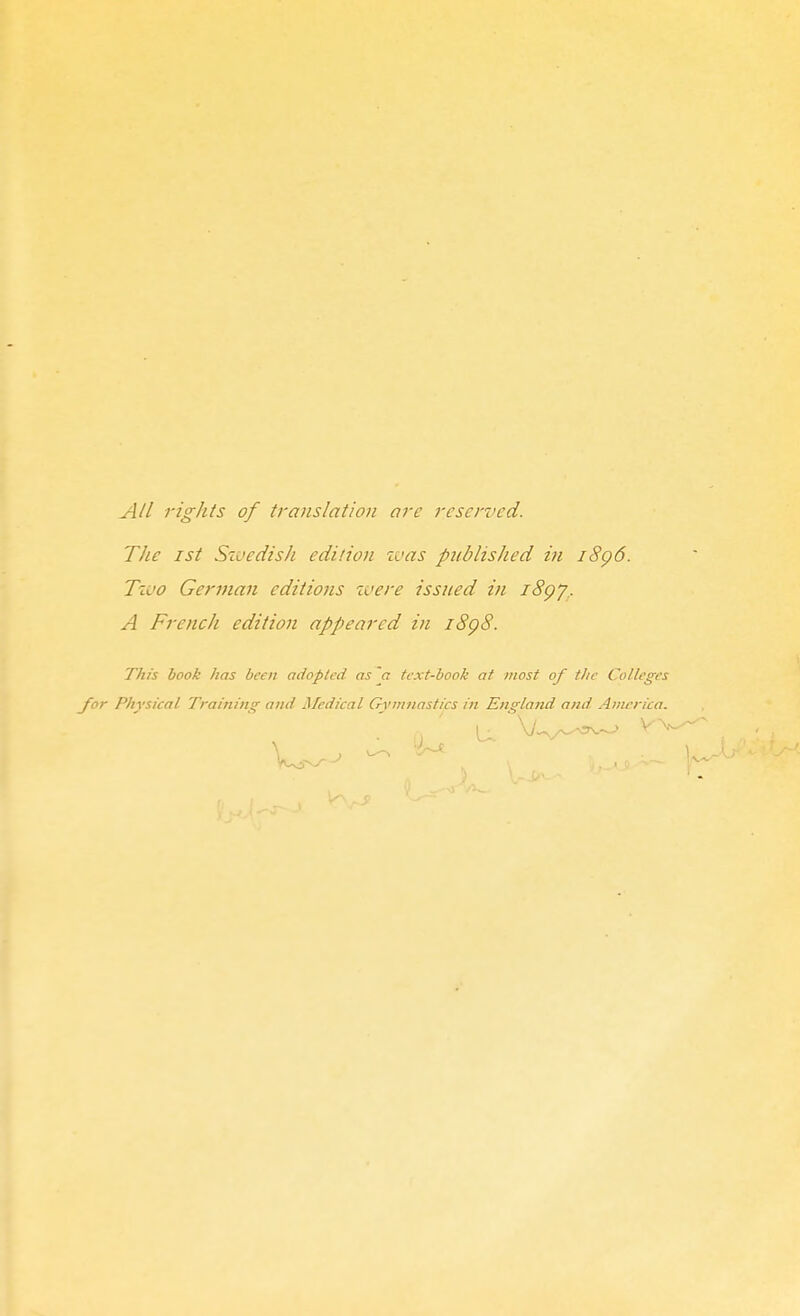 All rights of translation are reserved.
The 1st Swedish edition was published in 1896.
Two German editions were issued in 1897.
A French edition appeared in 1898.
This book has been adopted as a text-book at most of the Colleges
for Physical Training and Medical Gymnastics in England and America.